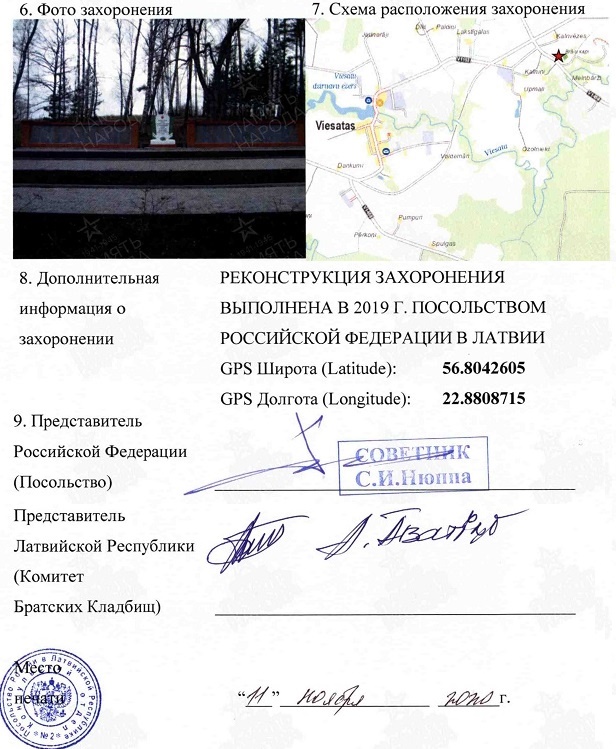 6. Фото захоронения
7. Схема расположения захоронения
ПАМЯТЬ НАРОДА
Dīķi
Paloņi
Lakstīgalas
Jasmuiāri
Kalnvēzes
Kalšuni
Meinbārži
Viesatu dzirnavu ezers
Viesatas
Viesata
Ozolnieki
Dankumi
Valdemāri
Pumpuri
Pērkoņi
Spulgas
8. Дополнительная информация о захоронении
РЕКОНСТРУКЦИЯ ЗАХОРОНЕНИЯ
ВЫПОЛНЕНА В 2019 Г. ПОСОЛЬСТВОМ
РОССИЙСКОЙ ФЕДЕРАЦИИ В ЛАТВИИ
GPS Широта (Latitude): 56.8042605
GPS Долгота (Longitude): 22.8808715
9. Представитель
Российской Федерации
(Посольство)
СОВЕТНИК
С.И.Нюппа
Представитель
Латвийской Республики
(Комитет
Братских Кладбищ)
Место
печати
Посольство России в Латвийской Республике
Консульский отдел
* №2 *
“11” ноября 2020 г.